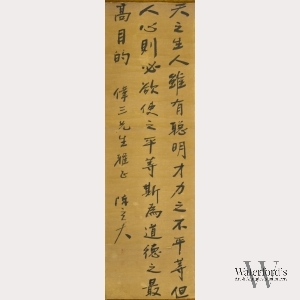 天之生人雖有聰明才力之不平等但
人心則必欲使之平等斯為道德之最
高目的 偉三先生雅正 陳立夫
Waterford's